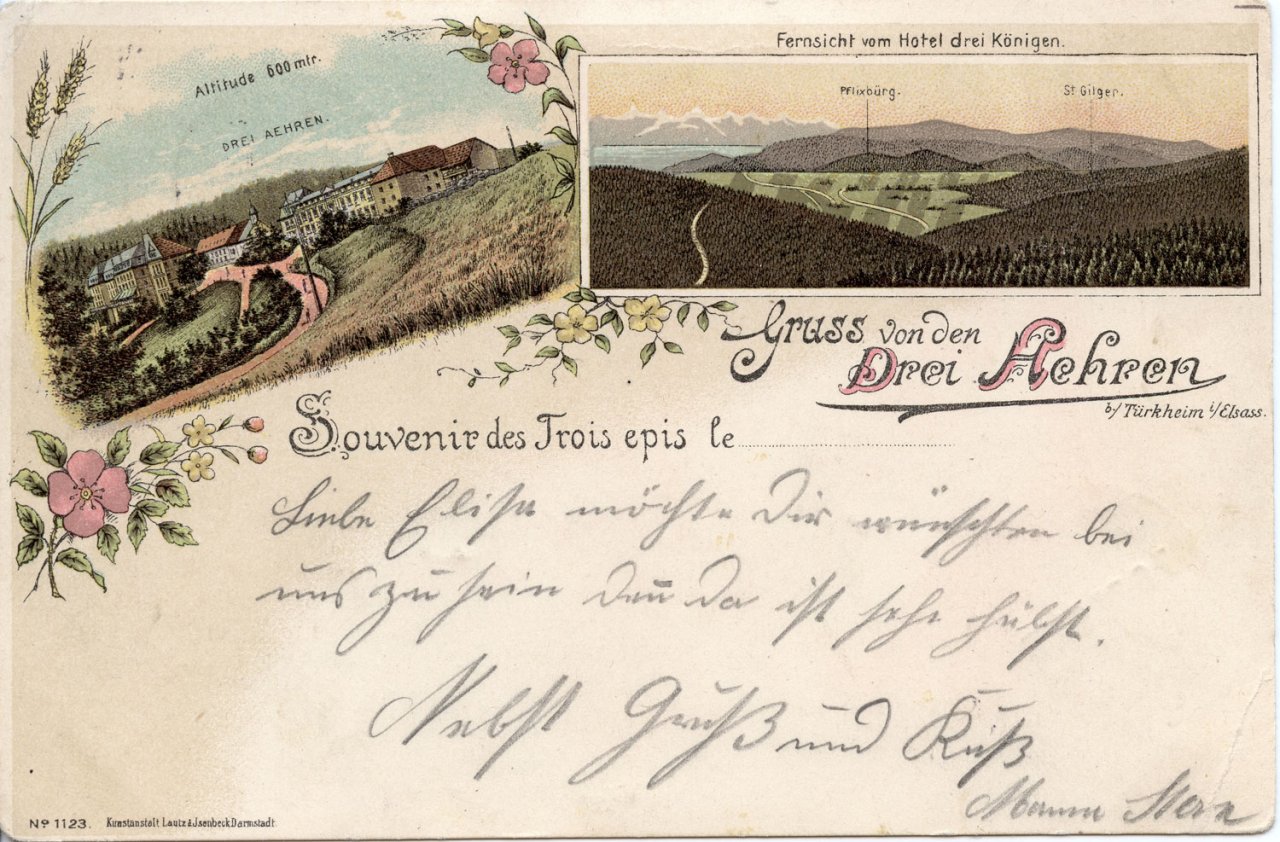 Altitude 600 mtr.
DREI AEHREN.
Fernsicht vom Hotel drei Königen.
Pflixbürg.
St Gilger.
Gruss von den
Drei Aehren
b/ Türkheim i/Elsass.
Souvenir des Trois epis le
Liebe Elisa möchte Dir wünschten bei
uns zu sein denn da ist sehr hülst.
Nebst Gruß und Kuß
Stern
No 1123. Kunstanstalt Lautz & Jsenbeck Darmstadt.